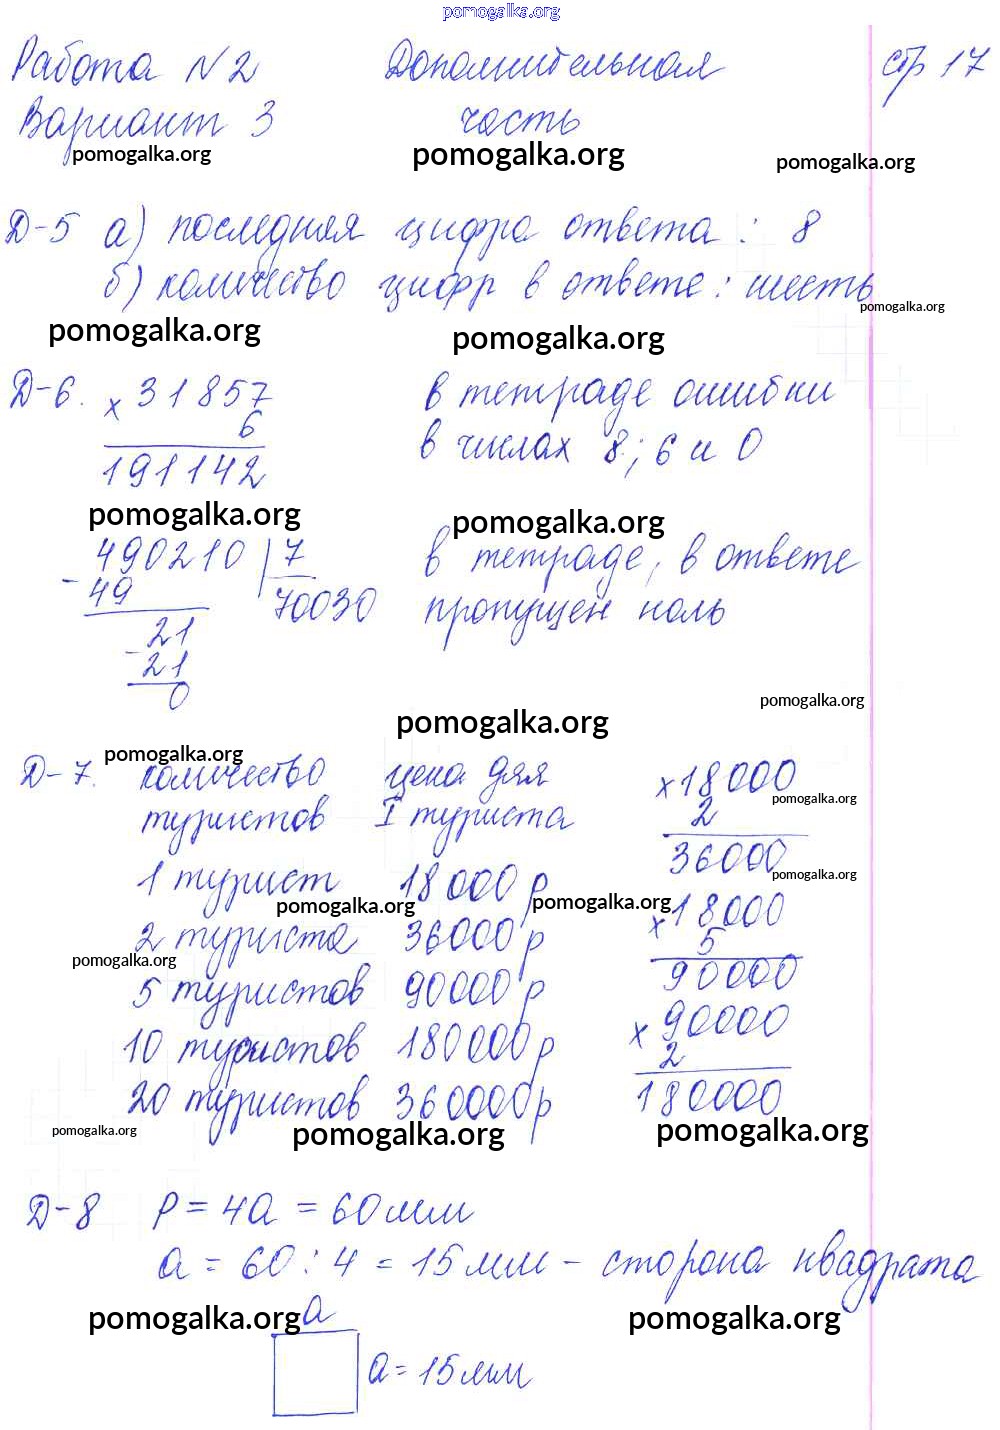 pomogalka.org
Работа №2 Дополнительная стр 17
Вариант 3 часть
pomogalka.org pomogalka.org pomogalka.org
Д-5 а) последняя цифра ответа : 8
б) количество цифр в ответе : шесть
pomogalka.org pomogalka.org pomogalka.org
Д-6. × 31857 в тетраде ошибки
6 в числах 8; 6 и 0
191142
pomogalka.org pomogalka.org
- 490210 | 7 в тетраде, в ответе
49 70030 пропущен ноль
- 21
21
0
pomogalka.org
pomogalka.org
pomogalka.org
Д-7. количество цена для ×18000
туристов I туриста 2
pomogalka.org
36000
1 турист 18000 р
pomogalka.org pomogalka.org pomogalka.org
×18000
2 туриста 36000 р 5
pomogalka.org
90000
5 туристов 90000 р
×90000
10 туристов 180000 р 2
20 туристов 360000 р 180000
pomogalka.org pomogalka.org pomogalka.org
Д-8 P = 4а = 60 мм
а = 60 : 4 = 15 мм – сторона квадрата
pomogalka.org а pomogalka.org
а = 15 мм